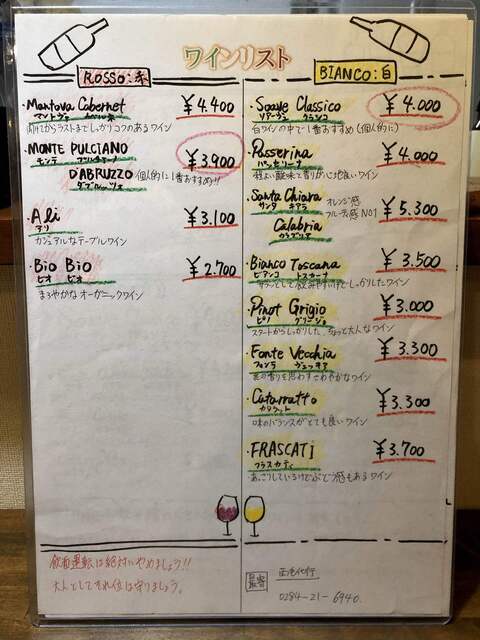 ワインリスト
ROSSO:赤
・Mantova Cabernet ¥4.400
マントヴァ カベルネ
開けてからラストまでしっかりコクのあるワイン
・MONTE PULCIANO ¥3,900
モンテ プルチャーノ
D'ABRUZZO 個人的に1番おすすめ!!
ダブルッツォ
・Ali ¥3.100
アリ
カジュアルなテーブルワイン
・Bio Bio ¥2.700
ビオ ビオ
まろやかなオーガニックワイン
BIANCO:白
・Soave Classico ¥4.000
ソアーヴェ クラシコ
白ワインの中で1番おすすめ(個人的に)
・Passerina ¥4.000
パッセリーナ
程よい酸味と香りが心地良いワイン
・Santa Chiara オレンジ感 ¥5.300
サンタ キアラ フルーティ感 NO1
Calabria
カラブリア
・Bianco Toscana ¥3.500
ビアンコ トスカーナ
サラッとして飲みやすいけどしっかりしたワイン
・Pinot Grigio ¥3.000
ピノ グリージョ
スタートからしっかりした、ちょっと大人なワイン
・Fonte Vecchia ¥3.300
フォンテ ヴェッキア
花の香りを思わすさわやかなワイン
・Catarratto ¥3.300
カタラット
味のバランスがとても良いワイン
・FRASCATi ¥3.700
フラスカティ
あっさりしているけどぶどう感もあるワイン
飲酒運転は絶対にやめましょう!!
大人としてきれいは守りましょう。
代行
0284-21-6940